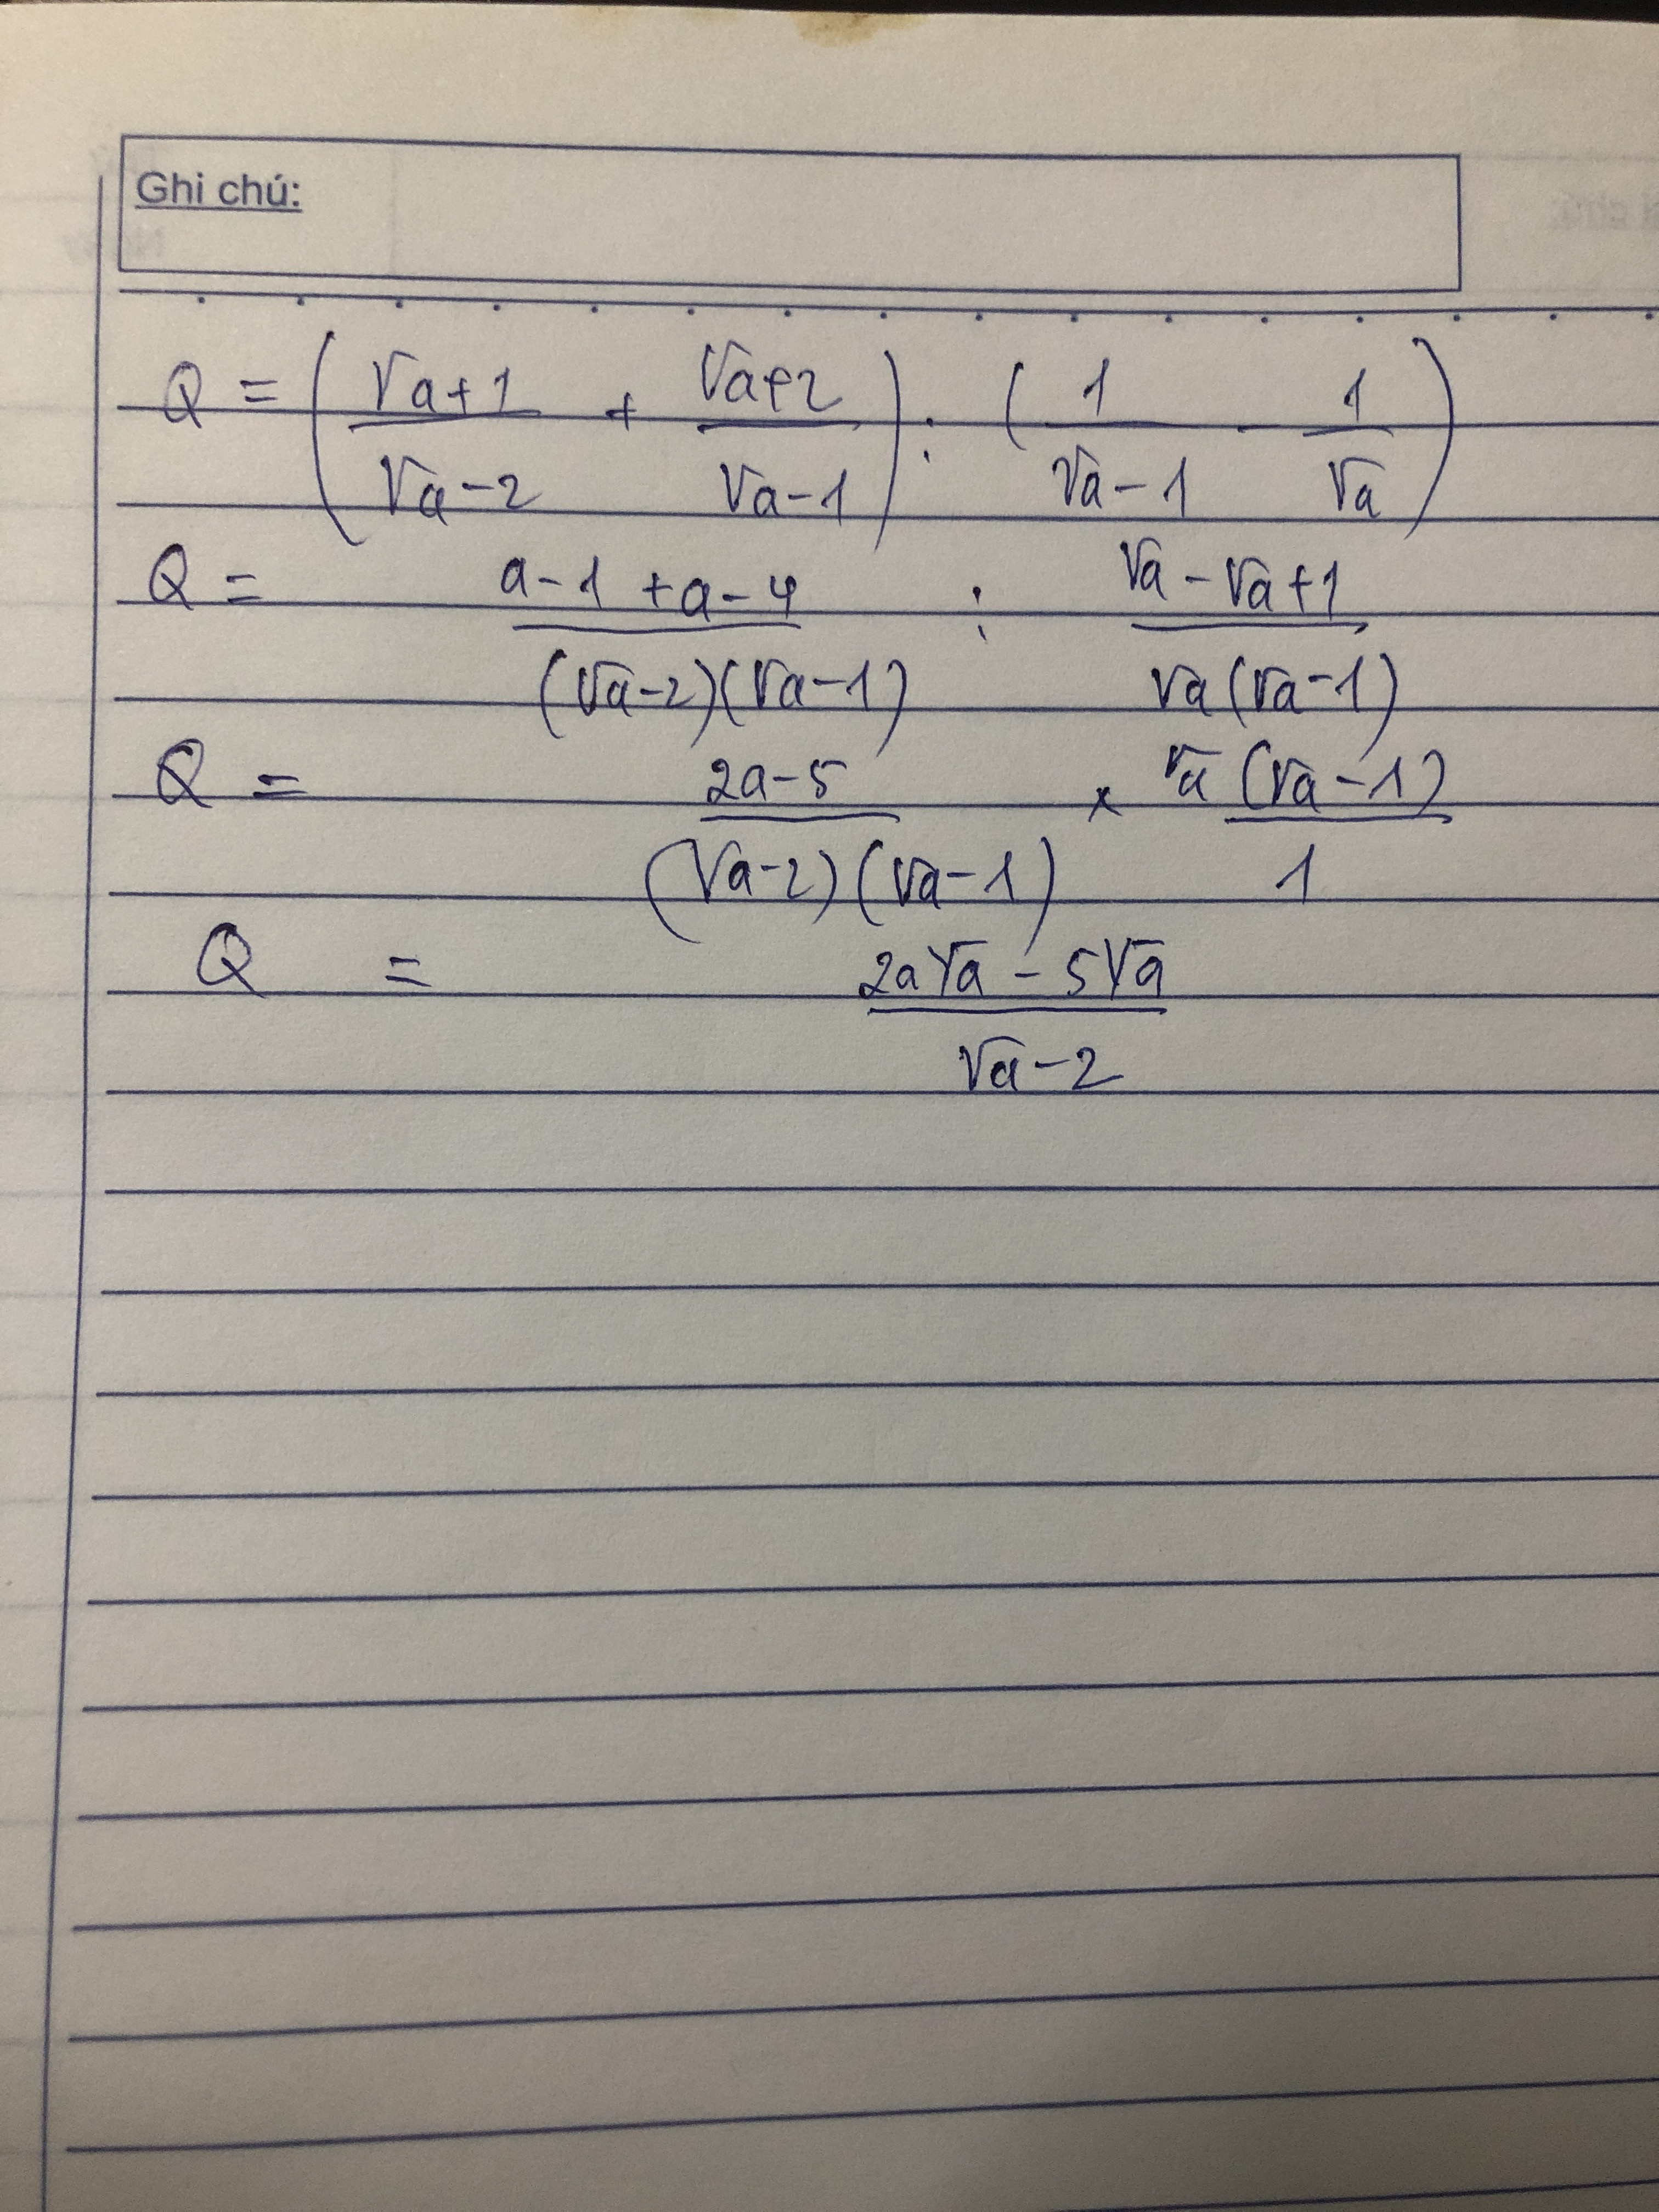 Ghi chú:
Q = ( (√a+1)/(√a-2) + (√a+2)/(√a-1) ) : ( 1/(√a-1) - 1/√a )
Q = (a-1+a-4)/((√a-2)(√a-1)) : (√a-√a+1)/(√a(√a-1))
Q = (2a-5)/((√a-2)(√a-1)) × (√a(√a-1))/1
Q = (2a√a - 5√a)/(√a-2)